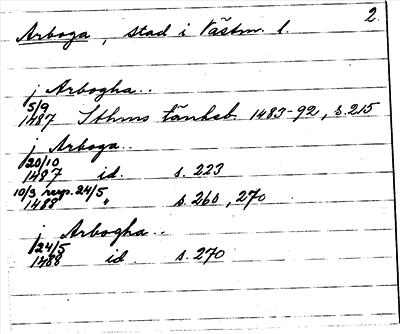 2.
Arboga, stad i Västm. l.
j Arbogha..
5/9
1487 Sthms tänkeb. 1483-92, s. 215
j Arboga..
20/10
1487 id. s. 223
10/3 resp. 24/5
1488 " s. 260, 270
j Arbogha..
24/5
1488 id. s. 270